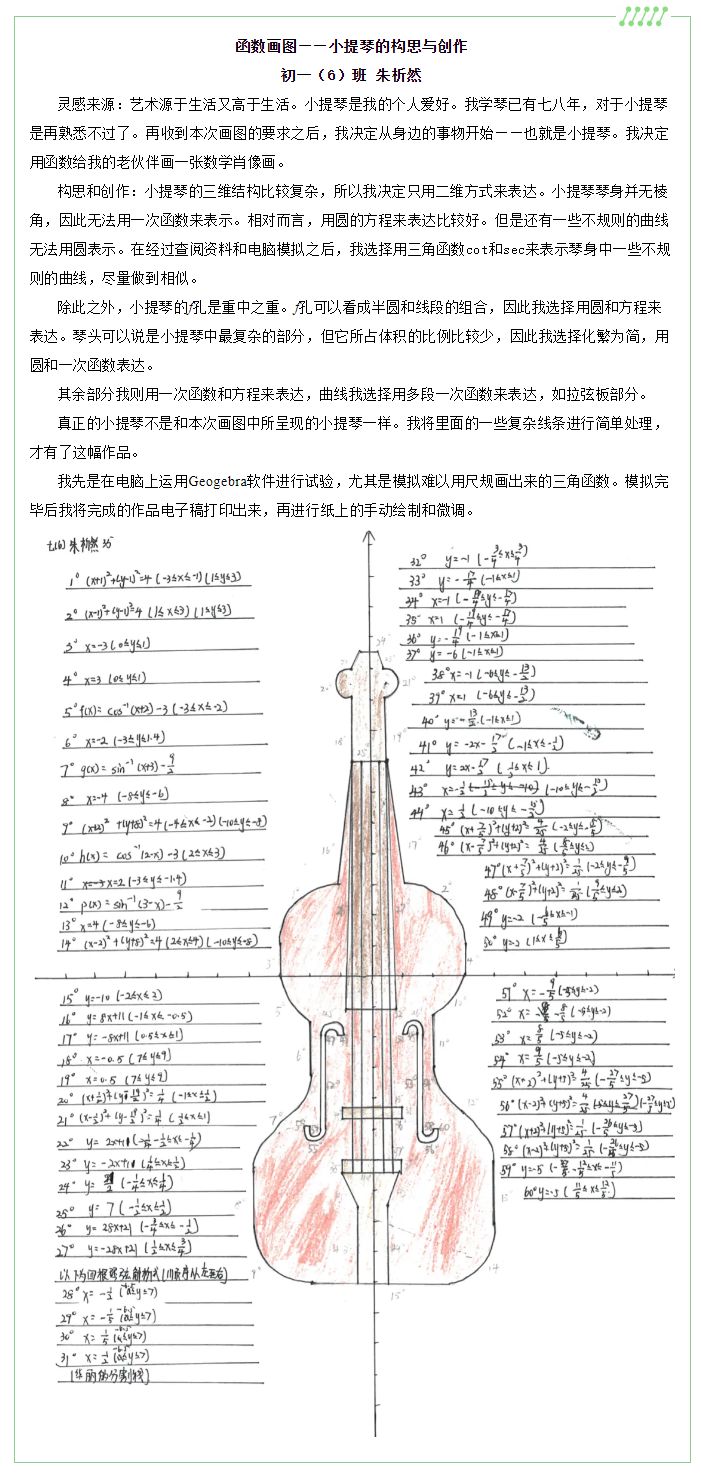 函数画图——小提琴的构思与创作
初一（6）班 朱析然
灵感来源：艺术源于生活又高于生活。小提琴是我的个人爱好。我学琴已有七八年，对于小提琴
是再熟悉不过了。再收到本次画图的要求之后，我决定从身边的事物开始——也就是小提琴。我决定
用函数给我的老伙伴画一张数学肖像画。
构思和创作：小提琴的三维结构比较复杂，所以我决定只用二维方式来表达。小提琴琴身并无棱
角，因此无法用一次函数来表示。相对而言，用圆的方程来表达比较好。但是还有一些不规则的曲线
无法用圆表示。在经过查阅资料和电脑模拟之后，我选择用三角函数cot和sec来表示琴身中一些不规
则的曲线，尽量做到相似。
除此之外，小提琴的f孔是重中之重。f孔可以看成半圆和线段的组合，因此我选择用圆和方程来
表达。琴头可以说是小提琴中最复杂的部分，但它所占体积的比例比较少，因此我选择化繁为简，用
圆和一次函数表达。
其余部分我则用一次函数和方程来表达，曲线我选择用多段一次函数来表达，如拉弦板部分。
真正的小提琴不是和本次画图中所呈现的小提琴一样。我将里面的一些复杂线条进行简单处理，
才有了这幅作品。
我先是在电脑上运用Geogebra软件进行试验，尤其是模拟难以用尺规画出来的三角函数。模拟完
毕后我将完成的作品电子稿打印出来，再进行纸上的手动绘制和微调。
七(6) 朱析然 35
1° (x+1)²+(y-1)²=4 (-3≤x≤-1) (1≤y≤3)
2° (x-1)²+(y-1)²=4 (1≤x≤3) (1≤y≤3)
3° x=-3 (0≤y≤1)
4° x=3 (0≤y≤1)
5° f(x)= cos⁻¹(x+2)-3 (-3≤x≤-2)
6° x=-2 (-3≤y≤-1.4)
7° g(x)= sin⁻¹(x+3)-9/2
8° x=-4 (-8≤y≤-6)
9° (x+2)²+(y+8)²=4 (-4≤x≤-2) (-10≤y≤-8)
10° h(x)= cos⁻¹(2-x)-3 (2≤x≤3)
11° x=2 (-3≤y≤-1.4)
12° p(x)= sin⁻¹(3-x)-9/2
13° x=4 (-8≤y≤-6)
14° (x-2)²+(y+8)²=4 (2≤x≤4) (-10≤y≤-8)
15° y=-10 (-2≤x≤2)
16° y=8x+11 (-1≤x≤-0.5)
17° y=-8x+11 (0.5≤x≤1)
18° x=-0.5 (7≤y≤9)
19° x=0.5 (7≤y≤9)
22° y=2x+10
23° y=-2x+10
25° y=7 (-1/2≤x≤1/2)
26° y=28x+21 (-3/4≤x≤-1/2)
27° y=-28x+21 (1/2≤x≤3/4)
以下为四根琴弦解析式(顺序从左至右)
28° x=-1/2
29° x=-1/5
30° x=1/5
31° x=1/2
[华丽的分割线]
32° y=-1 (-3/4≤x≤3/4)
33° y=-17/4 (-1≤x≤1)
34° x=-1 (-19/4≤y≤-17/4)
35° x=1 (-19/4≤y≤-17/4)
36° y=-19/4 (-1≤x≤1)
37° y=-6 (-1≤x≤1)
38° x=-1 (-6≤y≤-13/2)
39° x=1 (-6≤y≤-13/2)
40° y=-13/2 (-1≤x≤1)
41° y=-2x-17/2 (-1≤x≤-1/2)
42° y=2x-17/2 (1/2≤x≤1)
49° y=-2
50° y=-2
51° x=-9/5 (-5≤y≤-2)
52° x=-8/5 (-5≤y≤-2)
53° x=8/5 (-5≤y≤-2)
54° x=9/5 (-5≤y≤-2)